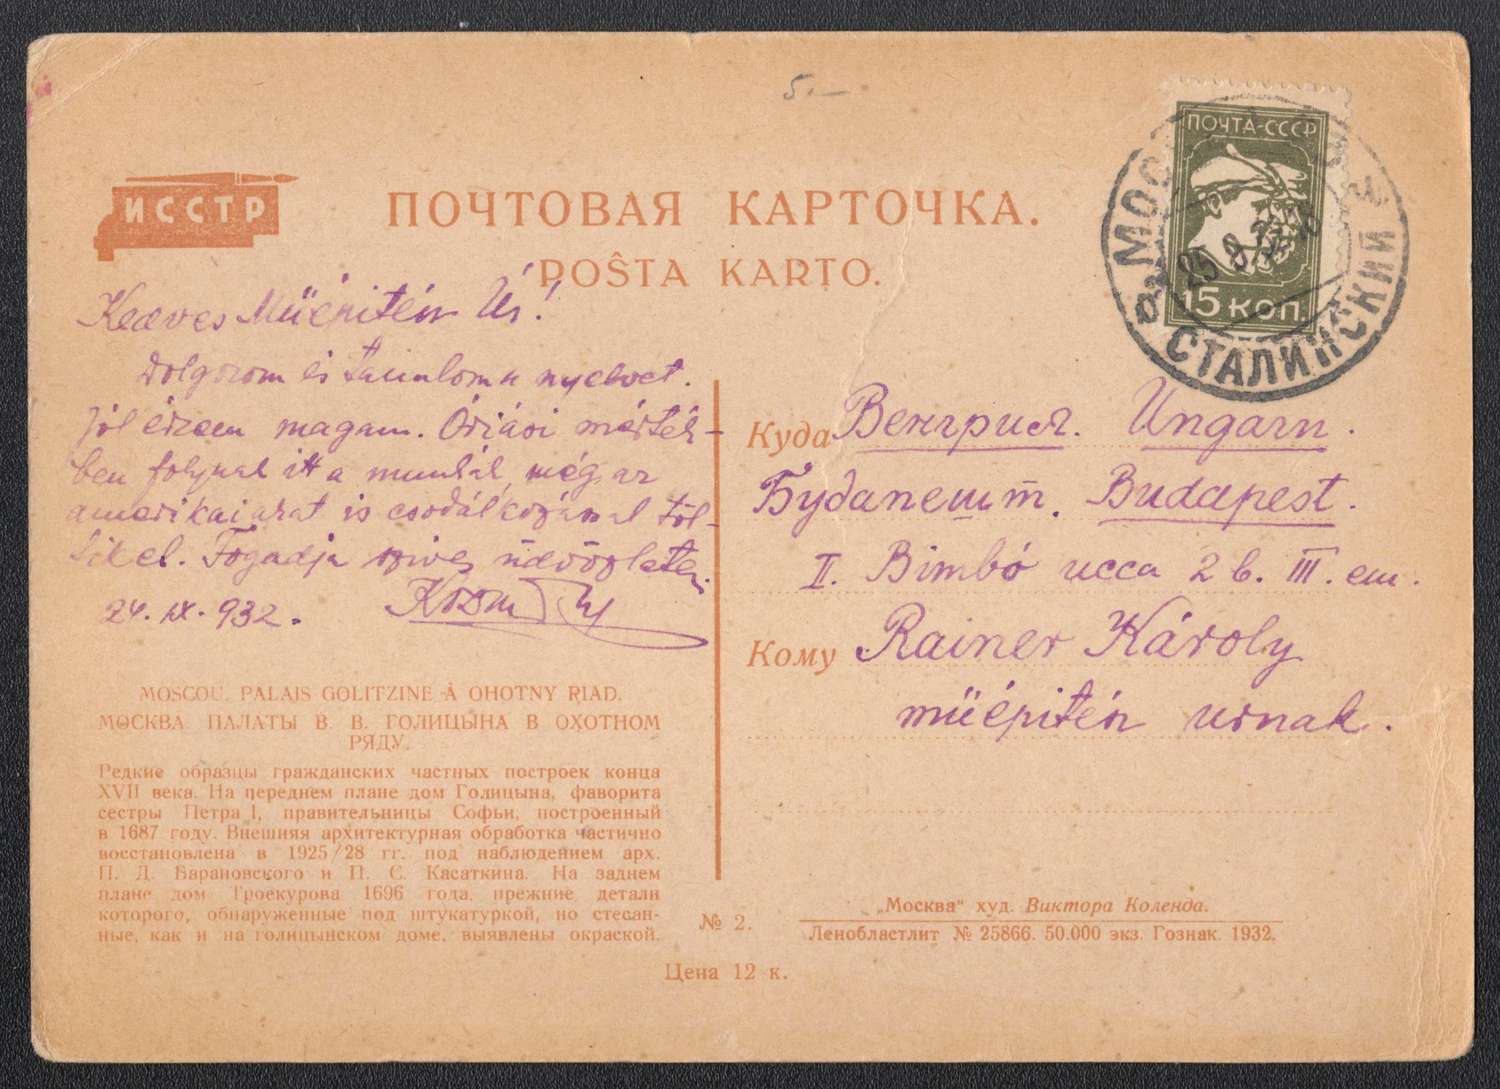 5.—
ИССТР
ПОЧТОВАЯ КАРТОЧКА.
POŜTA KARTO.
ПОЧТА-СССР
15 КОП.
МОС
25 9
СТАЛИНСКИЙ
Kedves Müépitén Úr!
Dolgozom és tanulom a nyelvet.
Jól érzem magam. Óriási mérték-
ben folynak itt a munkák, még az
amerikaiakat is csodálkozással töl-
tik el. Fogadja szives üdvözletem
24. IX. 932.
Куда Венгрия. Ungarn.
Будапешт. Budapest.
II. Bimbó ucca 2 b. III. em.
Кому Rainer Károly
müépitén urnak.
MOSCOU. PALAIS GOLITZINE À OHOTNY RIAD.
МОСКВА. ПАЛАТЫ В. В. ГОЛИЦЫНА В ОХОТНОМ
РЯДУ.
Редкие образцы гражданских частных построек конца
XVII века. На переднем плане дом Голицына, фаворита
сестры Петра I, правительницы Софьи, построенный
в 1687 году. Внешняя архитектурная обработка частично
восстановлена в 1925/28 гг. под наблюдением арх.
П. Д. Барановского и П. С. Касаткина. На заднем
плане дом Троекурова 1696 года, прежние детали
которого, обнаруженные под штукатуркой, но стесан-
ные, как и на голицынском доме, выявлены окраской.
№ 2.
„Москва“ худ. Виктора Коленда.
Ленобластлит № 25866. 50.000 экз. Гознак. 1932.
Цена 12 к.